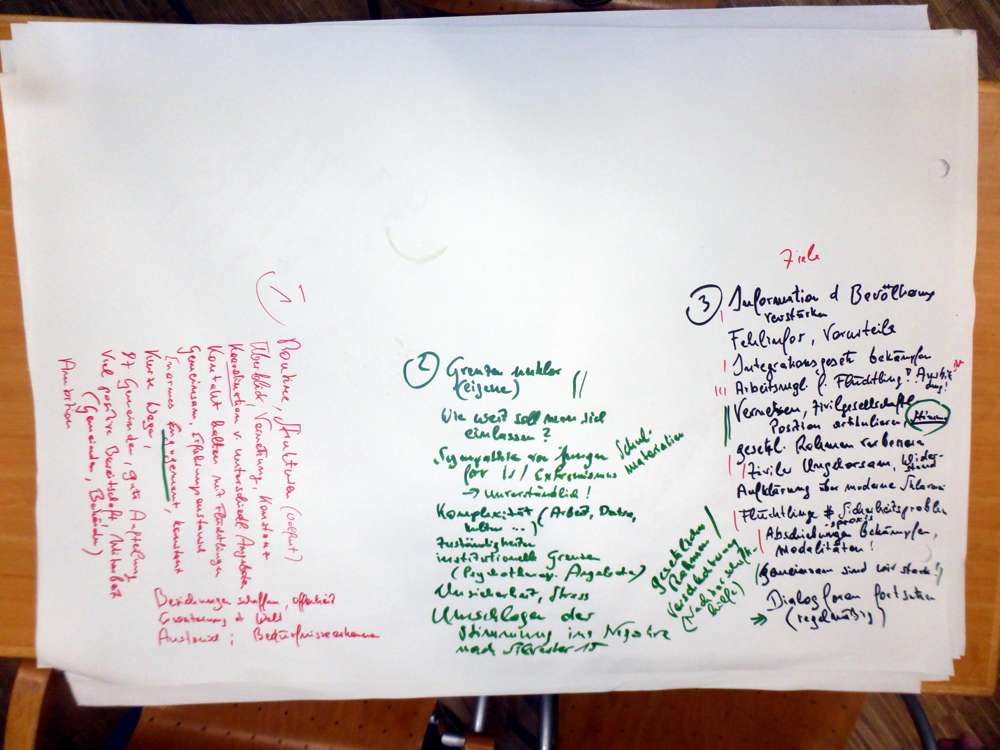 1
Routine, Strukturen
Überblick, Vernetzung, Konstanz
Koordination v. unterschiedl. Angeboten
Kontakt halten mit Flüchtlingen
Gemeinsam, Erfahrungsaustausch
Enormes Engagement,
Kurze Wege,
97 Gemeinden, gute Aufteilung
Viel positive Bereitschaft, Mitarbeit
(Gemeinden, Behörden)
Ambition
Beziehungen schaffen, Offenheit
Erweiterung d Welt
Austausch: Bedürfnisse erkennen
2 Grenzen unklar
(eigene)
Wie weit soll man sich
einlassen?
Sympathie von Jungen
für IS / Extremismus
→ unverständlich!
Schul-
materialien
Komplexität (Arbeit, Dauer,
Kultur ...)
Zuständigkeiten
institutionelle Grenzen
(Psychotherap. Angebote)
Unsicherheit, Stress
Umschlagen der
Stimmung ins Negative
nach Silvester 15
gesetzlicher
Rahmen
Verschärfung
(Nachbarschafts-
hilfe)
Ziele
3 Information d Bevölkerung
verstärken
Fehlinfos, Vorurteile
Integrationsgesetz bekämpfen
Arbeitsmögl. f. Flüchtling?
Vernetzen, Zivilgesellschaftl.
Position artikulieren,
Stimme
gesetzl. Rahmen verbessern
Ziviler Ungehorsam, Widerstand
Aufklärung über moderne Sklaverei
Flüchtlinge ≠ Sicherheitsproblem
Abschiebungen bekämpfen,
praxis
Modalitäten!
(gemeinsam sind wir stark!)
→ Dialogforen fortsetzen
(regelmäßig)